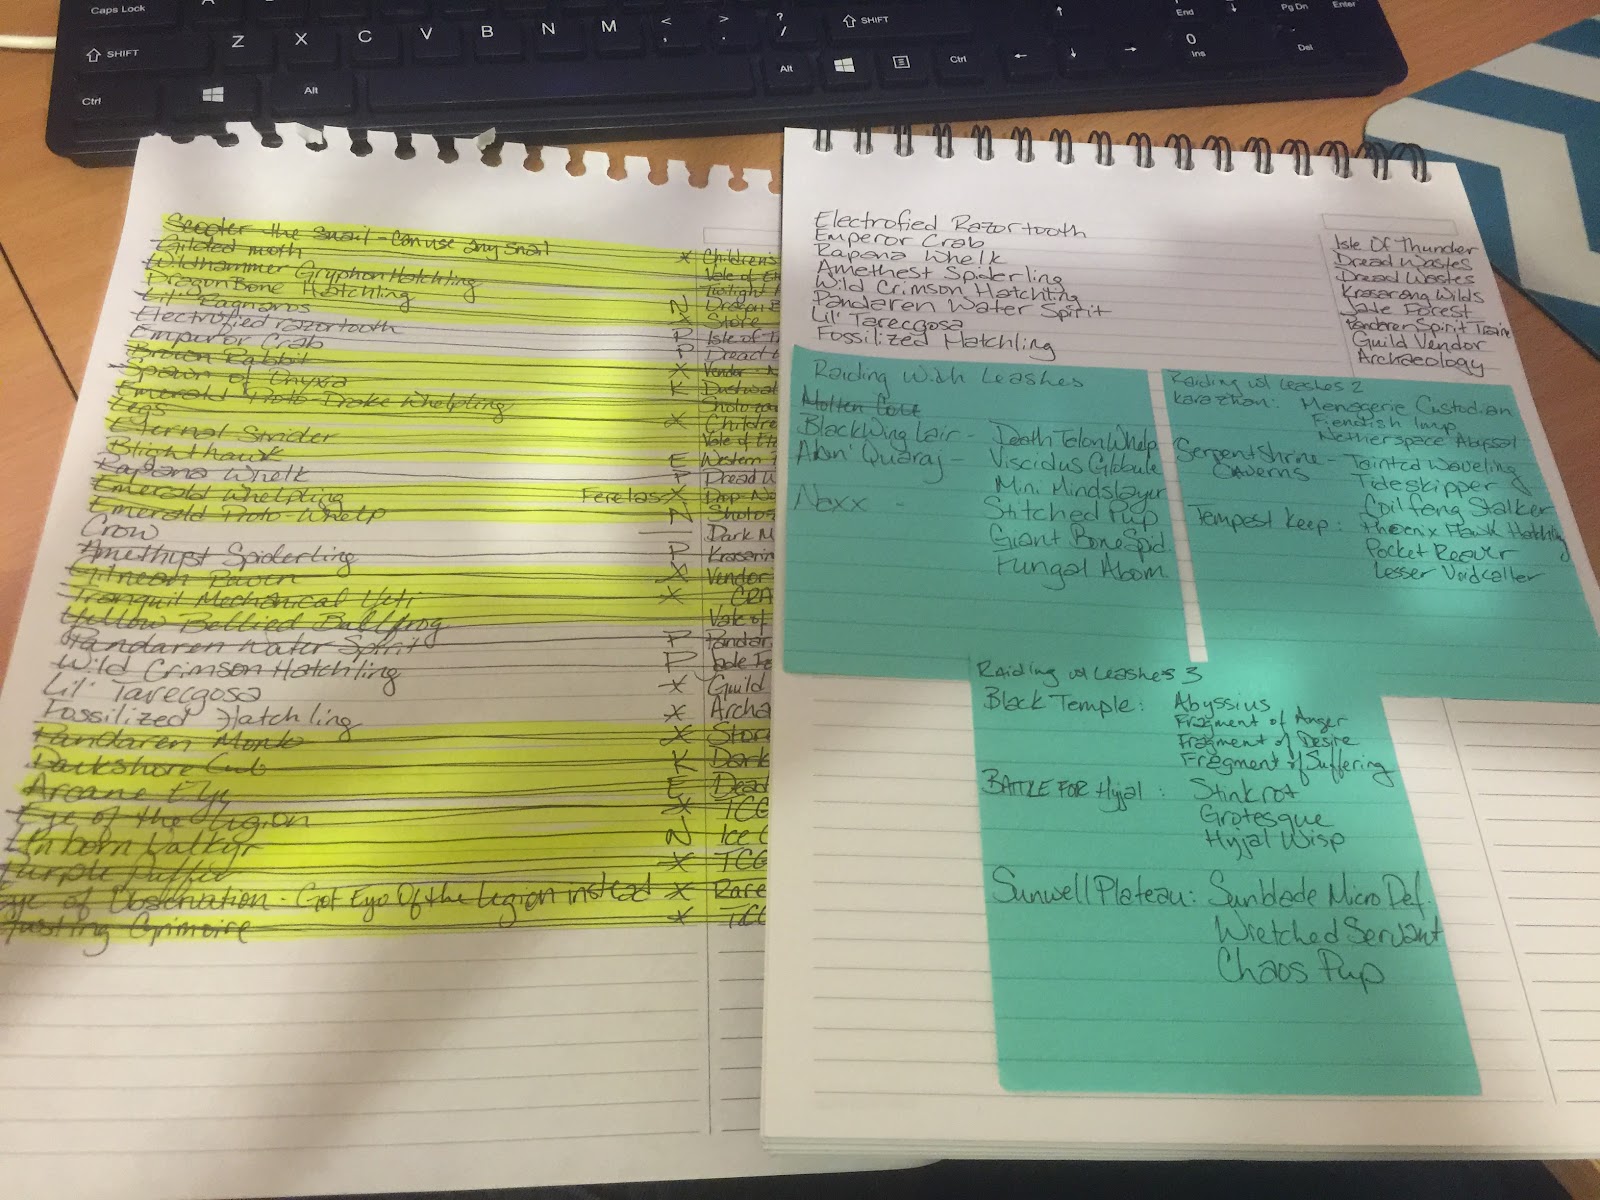 Caps Lock
A
End
Pg Dn
Enter
SHIFT
Z X C V B N M < , > . ? /
SHIFT
0
Ins
Del
Ctrl
Alt
Alt
Ctrl
Scooter the snail - Can use any snail X Children's
Gilded moth Vale of
Wildhammer Gryphon Hatchling Twilight
DragonBone Hatchling N Dragon B
Lil' Ragnaros X Store
Electrofied razortooth P Isle of T
Emperor Crab P Dread
Brown Rabbit X Vendor - N
Spawn of Onyxia K Dustwal
Emerald Proto-Drake Whelpling Sholoza
Legs X Children
Eternal Strider Vale of Ete
Blighthawk E Western
Rapana Whelk P Dread W
Emerald Whelpling Ferelas X Drop-No
Emerald Proto-Whelp N Sholos
Crow — Dark M
Amethyst Spiderling P Krasarin
Gilnean Raven X Vendor
Tranquil Mechanical Yeti X CRA
Yellow Bellied Bullfrog Vale of
Pandaren Water Spirit P Pandar
Wild Crimson Hatchling P Jade Fo
Lil' Tarecgosa X Guild
Fossilized Hatchling X Archa
Pandaren Monk X Stor
Darkshore Cub K Dark
Arcane Eye E Dead
Eye of the Legion X TCG
Unborn Valkyr N Ice C
Purple Puffer X TCG
Eye of Observation - Got Eye Of the Legion instead X Rare
Lusting Grimoire X TCG
Electrofied Razortooth Isle Of Thunder
Emperor Crab Dread Wastes
Rapana Whelk Dread Wastes
Amethest Spiderling Krasarang Wilds
Wild Crimson Hatchling Jade Forest
Pandaren Water Spitit Pandaren Spirit Traine
Lil' Tarecgosa Guild Vendor
Fossilized Hatchling Archaeology
Raiding With Leashes
Molten Core
BlackWing Lair - Death Talon Whelp
Ahn' Quaraj - Viscidus Globule
Mini Mindslayer
Naxx - Stitched Pup
Giant Bone Spid.
Fungal Abom.
Raiding w/ Leashes 2
Karazhan: Menagerie Custodian
Fiendish Imp
Netherspace Abyssal
Serpent Shrine - Tainted Waveling
Caverns Tideskipper
Coilfang Stalker
Tempest Keep: Phoenix Hawk Hatchling
Pocket Reaver
Lesser Voidcaller
Raiding w/ Leashes 3
Black Temple: Abyssius
Fragment of Anger
Fragment of Desire
Fragment of Suffering
BATTLE FOR Hyjal: Stinkrot
Grotesque
Hyjal Wisp
Sunwell Plateau: Sunblade Micro Def.
Wretched Servant
Chaos Pup